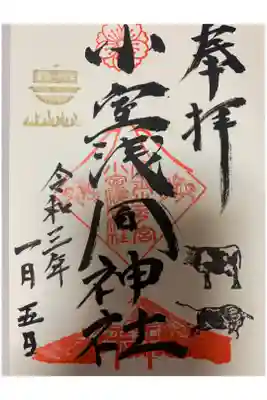 奉拝
小室浅間神社
令和三年
一月五日